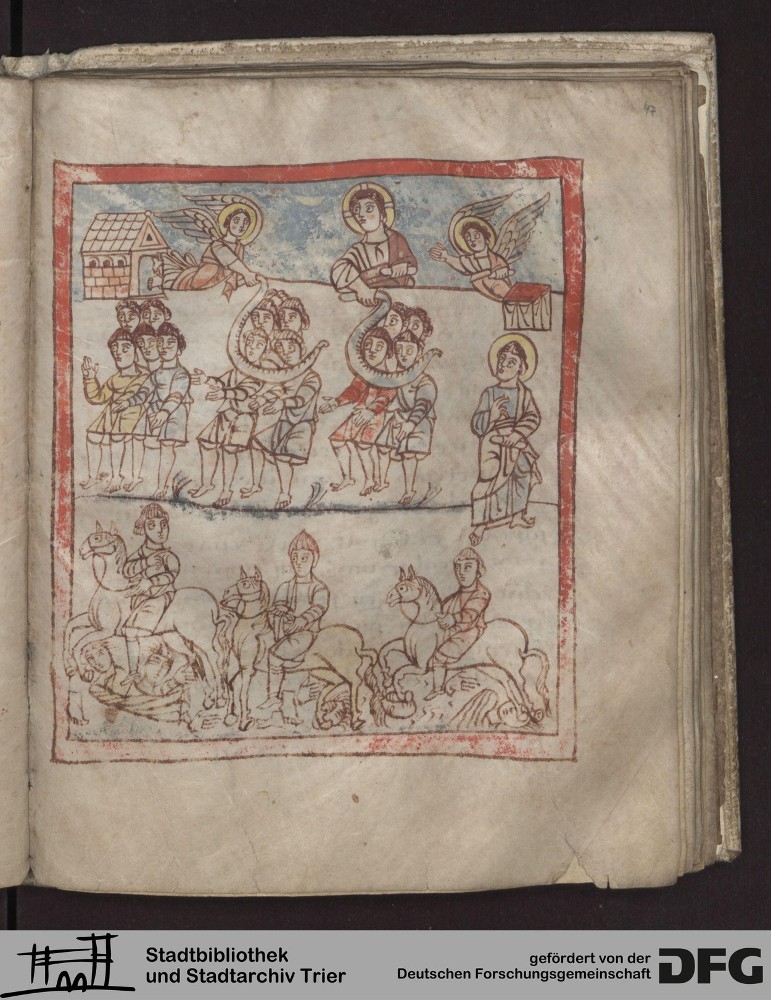 47
Stadtbibliothek
und Stadtarchiv Trier
gefördert von der
Deutschen Forschungsgemeinschaft
DFG